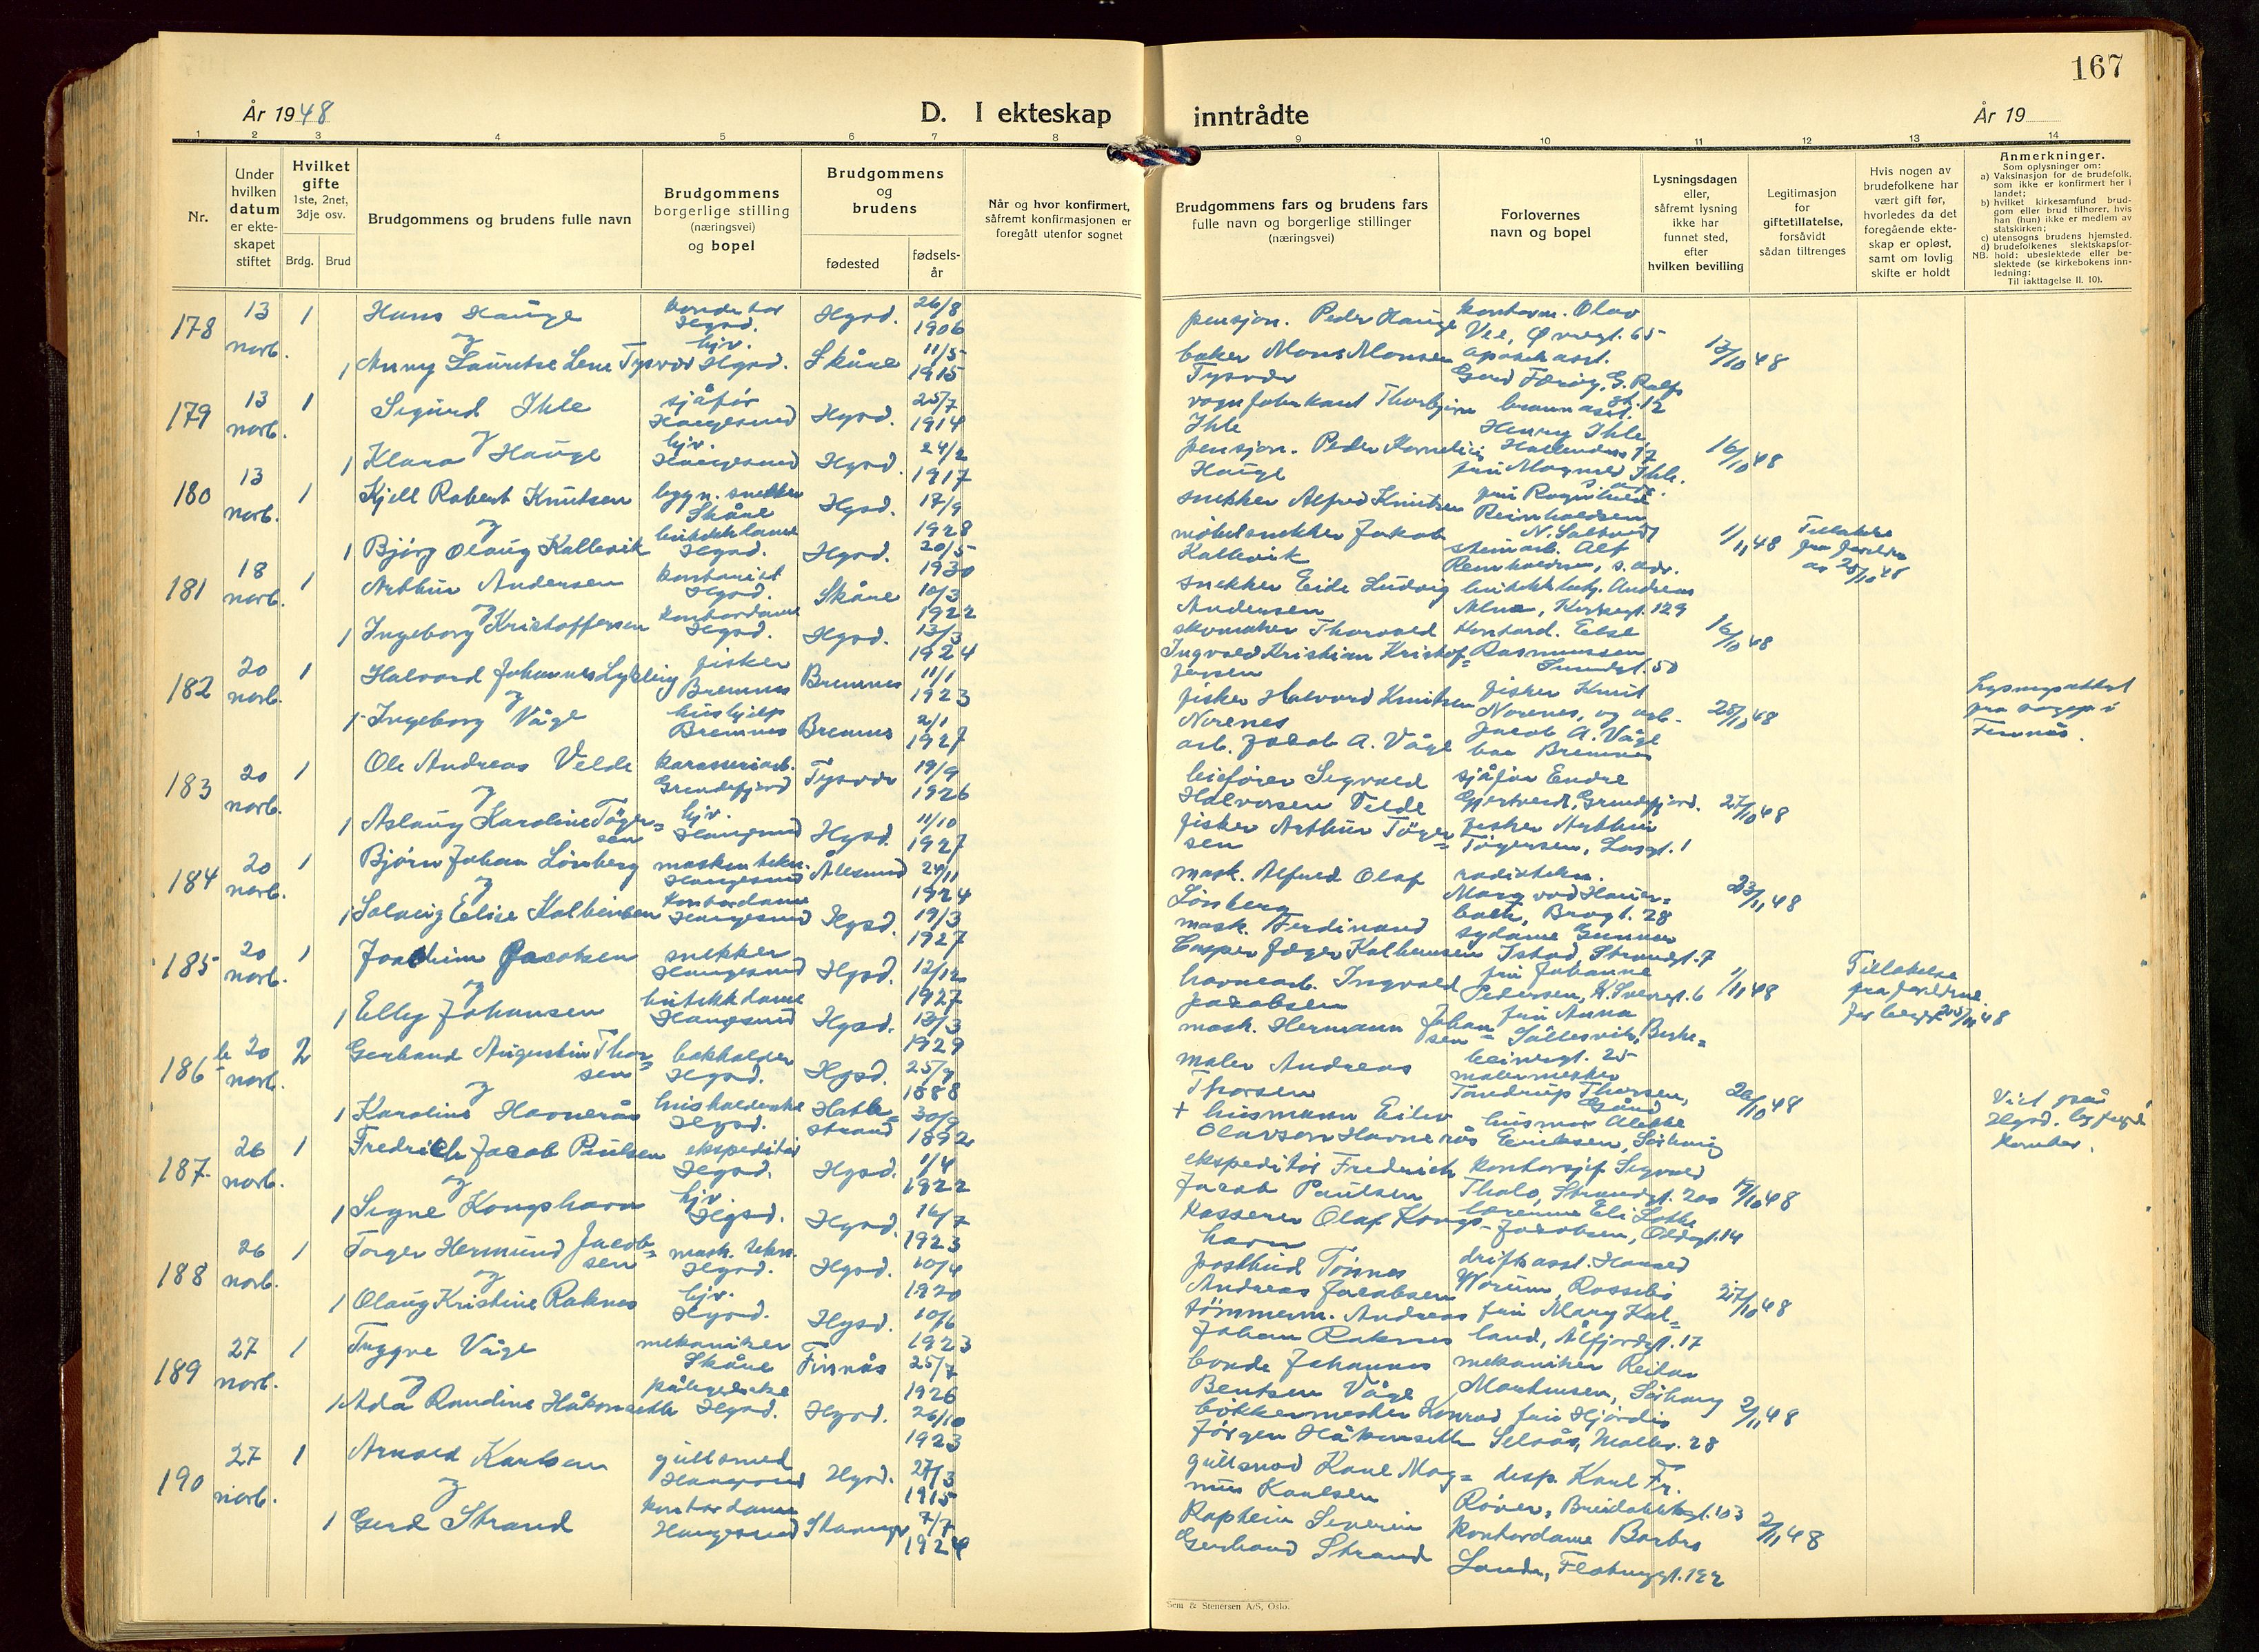 167
År 1948
D. I ekteskap
inntrådte
År 19
1 2 3 4 5 6 7 8 9 10 11 12 13 14
Nr.
Under
hvilken
datum
er ekte-
skapet
stiftet
Hvilket
gifte
1ste, 2net,
3dje osv.
Brdg. Brud
Brudgommens og brudens fulle navn
Brudgommens
borgerlige stilling
(næringsvei)
og bopel
Brudgommens
og
brudens
fødested
fødsels-
år
Når og hvor konfirmert,
såfremt konfirmasjonen er
foregått utenfor sognet
Brudgommens fars og brudens fars
fulle navn og borgerlige stillinger
(næringsvei)
Forlovernes
navn og bopel
Lysningsdagen
eller,
såfremt lysning
ikke har
funnet sted,
efter
hvilken bevilling
Legitimasjon
for
giftetillatelse,
forsåvidt
sådan tiltrenges
Hvis nogen av
brudefolkene har
vært gift før,
hvorledes da det
foregående ekte-
skap er opløst,
samt om lovlig
skifte er holdt
Anmerkninger.
Som oplysninger om:
a) Vaksinasjon for de brudefolk,
som ikke er konfirmert her i
landet;
b) hvilket kirkesamfund brud-
gom eller brud tilhører, hvis
han (hun) ikke er medlem av
statskirken;
c) utensogns brudens hjemsted.
d) brudefolkenes slektskapsfor-
NB. hold: ubeslektede eller be-
slektede (se kirkebokens inn-
ledning:
Til iakttagelse II. 10).
178
13
novb.
1
Hans Hauge
og
1 Anny Lauritse Lene Tysvær
Hgsd.
hjv.
Hgsd.
Hgsd.
26/8
1906
Skåre
11/5
1915
pensjon. Peder Hauge
baker Mons Monsen
Tysvær
kontorm. Olav
Vee, Øvregt. 65
13/10 48
179
13
novb.
1
Sigurd Ihle
og
1 Klara Hauge
sjåfør
Haugesund
hjv.
Haugesund
Hgsd.
25/7
1914
Hgsd.
24/2
1917
vognfabrikant Thorbjørn
Ihle
pensjon. Peder Kornelius
Hauge
Henry Ihle
16/10 48
180
13
novb.
1
Kjell Robert Knutsen
og
1 Bjørg Olaug Kallevik
bygn. snekker
Skåre
butikkdame
Hgsd.
Hgsd.
17/9
1928
Hgsd.
20/5
1930
snekker Alfred Knutsen
møbelsnekker Jakob
Kallevik
fru Ragnhild
Reinholdsen
steinarb. Alf
Reinholdsen, s. adr.
1/11 48
Tillatelse
fra foreldre
av 25/10 48
181
18
novb.
1
Arthur Andersen
og
1 Ingeborg Kristoffersen
kontorist
Hgsd.
kontordame
Hgsd.
Skåre
10/3
1922
Hgsd.
13/3
1924
snekker Eide Ludvig
Andersen
skomaker Thorvald
Ingvald Kristian Kristof=
fersen
Andreas
Alne, Kirkegt. 129
Kontord. Else
Rasmussen
16/10 48
182
20
novb.
1
Halvard Johannes Lykling
og
1 Ingeborg Våge
fisker
Bremnes
hushjelp
Bremnes
Bremnes
11/1
1923
Bremnes
2/1
1927
fisker Halvard Knutsen
Norenes
arb. Jacob A. Våge
fisker Knut
Norenes, og arb.
Jacob A. Våge
bae Bremnes
28/10 48
Lysningsattest
fra sognepr. i
Finnås.
183
20
novb.
1
Ole Andreas Velde
og
1 Aslaug Karoline Tøger=
sen
karosseriarb.
Grindefjord
hjv.
Haugesund
Tysvær
19/9
1926
Hgsd.
11/10
1927
Sigvald
Halvorsen Velde
fisker Arthur Tøger=
sen
sjåfør Endre
Gjertveit, Grindefjord.
fisker Arthur
Tøgersen,
27/10 48
184
20
novb.
1
Bjørn Johan Lønberg
og
1 Solveig Elise Kalhensen
maskintekn.
Haugesund
kontordame
Haugesund
Ålesund
24/11
1924
Hgsd.
19/3
1927
mask. Alfred Olaf
Lønberg
mask. Ferdinand
Casper Jæger Kalhensen
radiotekn.
bach, Brogt. 28
sydame Gunnvor
Istad, Strandgt. 7
23/11 48
185
20
novb.
1
Joachim Jacobsen
og
1 Elly Johansen
snekker
Haugesund
butikkdame
Haugesund
Hgsd.
12/12
1927
Hgsd.
13/3
1929
havnearb. Ingvald
Jacobsen
mask. Hermann Johan=
sen
fru Johanne
Pedersen,
fru Anna
1/11 48
Tillatelse
fra foreldrene
186
20
novb.
2
Gerhard Augustin Thor=
sen
og
1 Karoline Havnerås
bokholder
Hgsd.
husholderske
Hgsd.
Hgsd.
25/9
1888
30/9
1892
maler Andreas
Thorsen
+ husmann Eilev
Olavson Havnerås
malermester
Tandrup Thorsen,
Eriksen,
26/10 48
Viet på
187
26
novb.
1
Fredrich Jacob Paulsen
og
1 Signe Kongshavn
ekspeditør
Hgsd.
hjv.
Hgsd.
Hgsd.
1/4
1922
Hgsd.
16/7
1923
ekspeditør Fredrich
Jacob Paulsen
kasserer Olaf Kongs-
havn
kontorsjef Sigvald
Thalo, Strandgt. 200
Jacobsen,
17/10 48
188
26
novb.
1
Torger Hermund Jacob=
sen
og
1 Olaug Kristine Raknes
mask. tekn.
Hgsd.
hjv.
Hgsd.
Hgsd.
10/4
1920
Hgsd.
10/6
1923
postbud Tønnes
Andreas Jacobsen
tømmerm. Andreas
Johan Raknes
driftsasst. Harald
Worum, Rossebø
fru Mary Kal=
land, Ålfjordgt. 17
27/10 48
189
27
novb.
1
Tryggve Våge
og
1 Ada Randine Håkonseth
mekaniker
Skåre
Hgsd.
Finnås
25/7
1926
Hgsd.
26/10
1923
bonde Johannes
Bentsen Våge
bøkkermester Konrad
Jørgen Håkonseth
mekaniker Reidar
Martinsen, Sørhaug
fru Hjørdis
Selvås, 28
2/11 48
190
27
novb.
1
Arnold Karlsen
og
1 Gerd Strand
gullsmed
Haugesund
kontordame
Haugesund
Hgsd.
27/3
1915
Stavanger
7/7
1924
gullsmed Karl Mag=
nus Karlsen
Kaptein Severin
Gerhard Strand
disp. Karl Fr.
Røver, Breidablikgt. 103
kontordame Borbro
Lande, Flotmyrgt. 122
2/11 48
Sem & Stenersen A/S, Oslo.